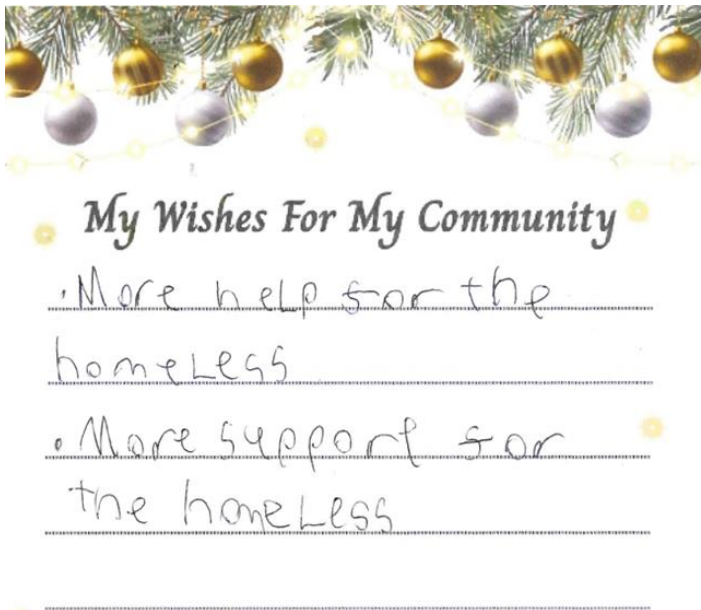 My Wishes For My Community
• More help for the
homeless
• More support for
the homeless